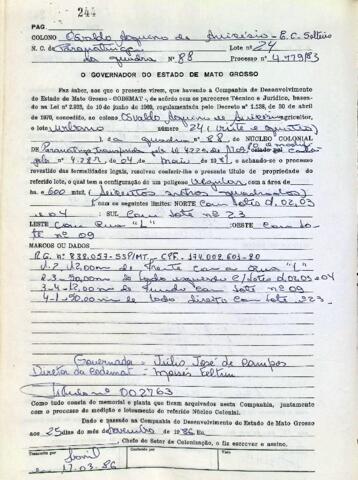 244
PAG
COLONO Osvaldo Aquino de Anicésio - E.C. Solteiro
N. C. de Paranatinga Lote nº 24
da quadra nº 88 Processo nº 4.779/83
O GOVERNADOR DO ESTADO DE MATO GROSSO
Faz saber, aos que o presente virem, que havendo a Companhia de Desenvolvimento
do Estado de Mato Grosso - CODEMAT -, de acôrdo com os pareceres Técnico e Jurídico, basea-
nas na Lei nº 2.925, de 10 de junho de 1969, regulamentada pelo Decreto nº 1.138, de 30 de abril
de 1970, concedido, ao colono Osvaldo Aquino de Anicésio agricultor,
o lote urbano número 24 (vinte e quatro)
da quadra nº 88 NÚCLEO COLONAL
de Paranatinga
pelo nº 4.787 de 04 de maio de 1981, e achando-se o processo
revestido das formalidades legais, resolveu conferir-lhe o presente título de propriedade
do referido lote, o qual tem a configuração de um polígono regular com a área de
ha. e 600 mts2 (seiscentos metros quadrados)
com os seguintes limites: NORTE com lotes d. 02,03
e 04 : SUL com lote nº 23
LESTE com Rua "L" : OESTE com lo-
te nº 09
MARCOS OU DADOS
R.G. nº 832.057-SSP/MT. - CPF. 174.002.601-20
1-2-12,00m de frente com a Rua "L"
2-3-50,00m do lado esquerdo c/ lotes d.02,03 e 04
3-4-12,00m de fundo com lote nº 09
4-1-50,00m do lado direito com lote 23.
Governador - Júlio José de Campos
Diretor da Codemat - Moisés Feltrin
Título nº 002763
Como tudo consta do memorial e planta que ficam arquivados nesta Companhia, juntamente
com o processo de medição e loteamento do referido Núcleo Colonial.
Dado e passado na Companhia do Desenvolvimento do Estado de Mato Grosso
aos 25 dias do fevereiro de 1986 Eu,
, Chefe do Setor de Colonização, o fiz escrever e assino.
17-03-86